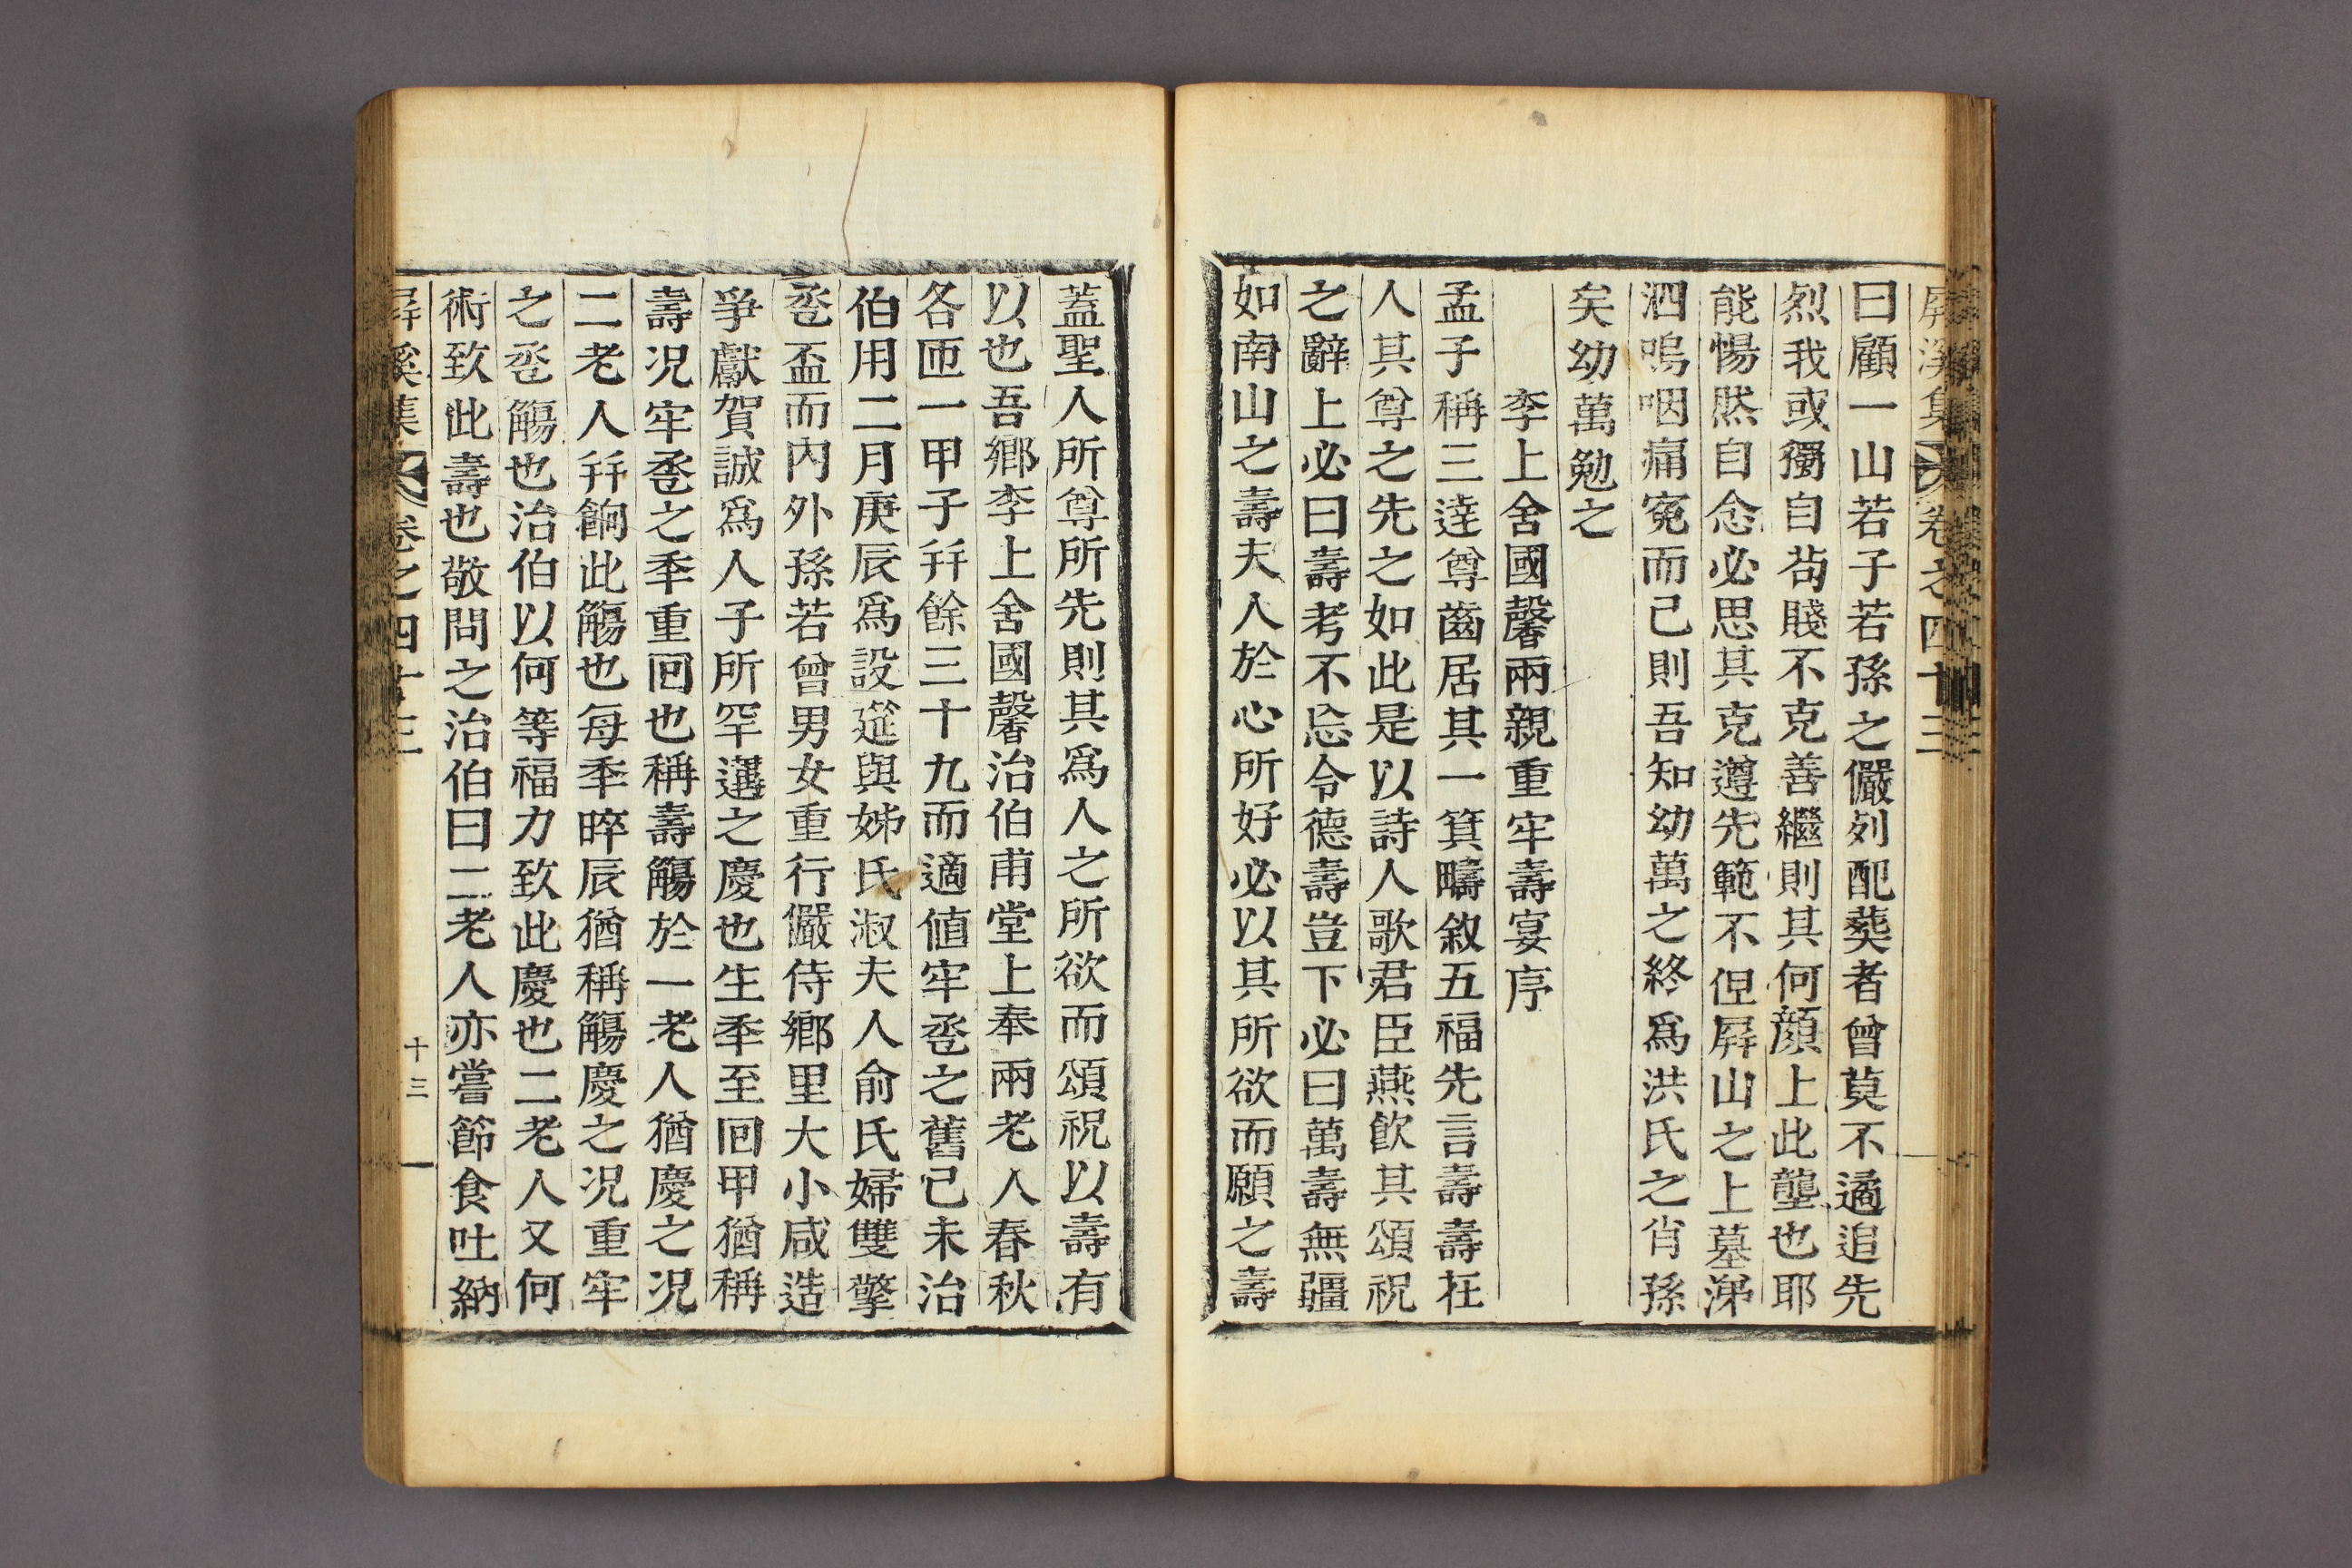 屛溪集 卷之四十三
曰顧一山若子若孫之儼列配葬者曾莫不遹追先
烈我或獨自茍賤不克善繼則其何顔上此壟也耶
能惕然自念必思其克遵先範不但屛山之上墓涕
泗嗚咽痛寃而已則吾知幼萬之終爲洪氏之肖孫
矣幼萬勉之
李上舍國馨兩親重牢壽宴序
孟子稱三達尊齒居其一箕疇敘五福先言壽壽在
人其尊之先之如此是以詩人歌君臣燕飮其頌祝
之辭上必曰壽考不忘令德壽豈下必曰萬壽無疆
如南山之壽夫人於心所好必以其所欲而願之壽
蓋聖人所尊所先則其爲人之所欲而頌祝以壽有
以也吾鄉李上舍國馨治伯甫堂上奉兩老人春秋
各匝一甲子幷餘三十九而適値牢巹之舊己未治
伯用二月庚辰爲設筵與姊氏淑夫人兪氏婦雙擎
巹盃而內外孫若曾男女重行儼侍鄉里大小咸造
爭獻賀誠爲人子所罕遘之慶也生秊至回甲猶稱
壽況牢巹之秊重回也稱壽觴於一老人猶慶之况
二老人幷餉此觴也每秊晬辰猶稱觴慶之况重牢
之巹觴也治伯以何等福力致此慶也二老人又何
術致此壽也敬問之治伯曰二老人亦嘗節食吐納
屛溪集 卷之四十三 十三